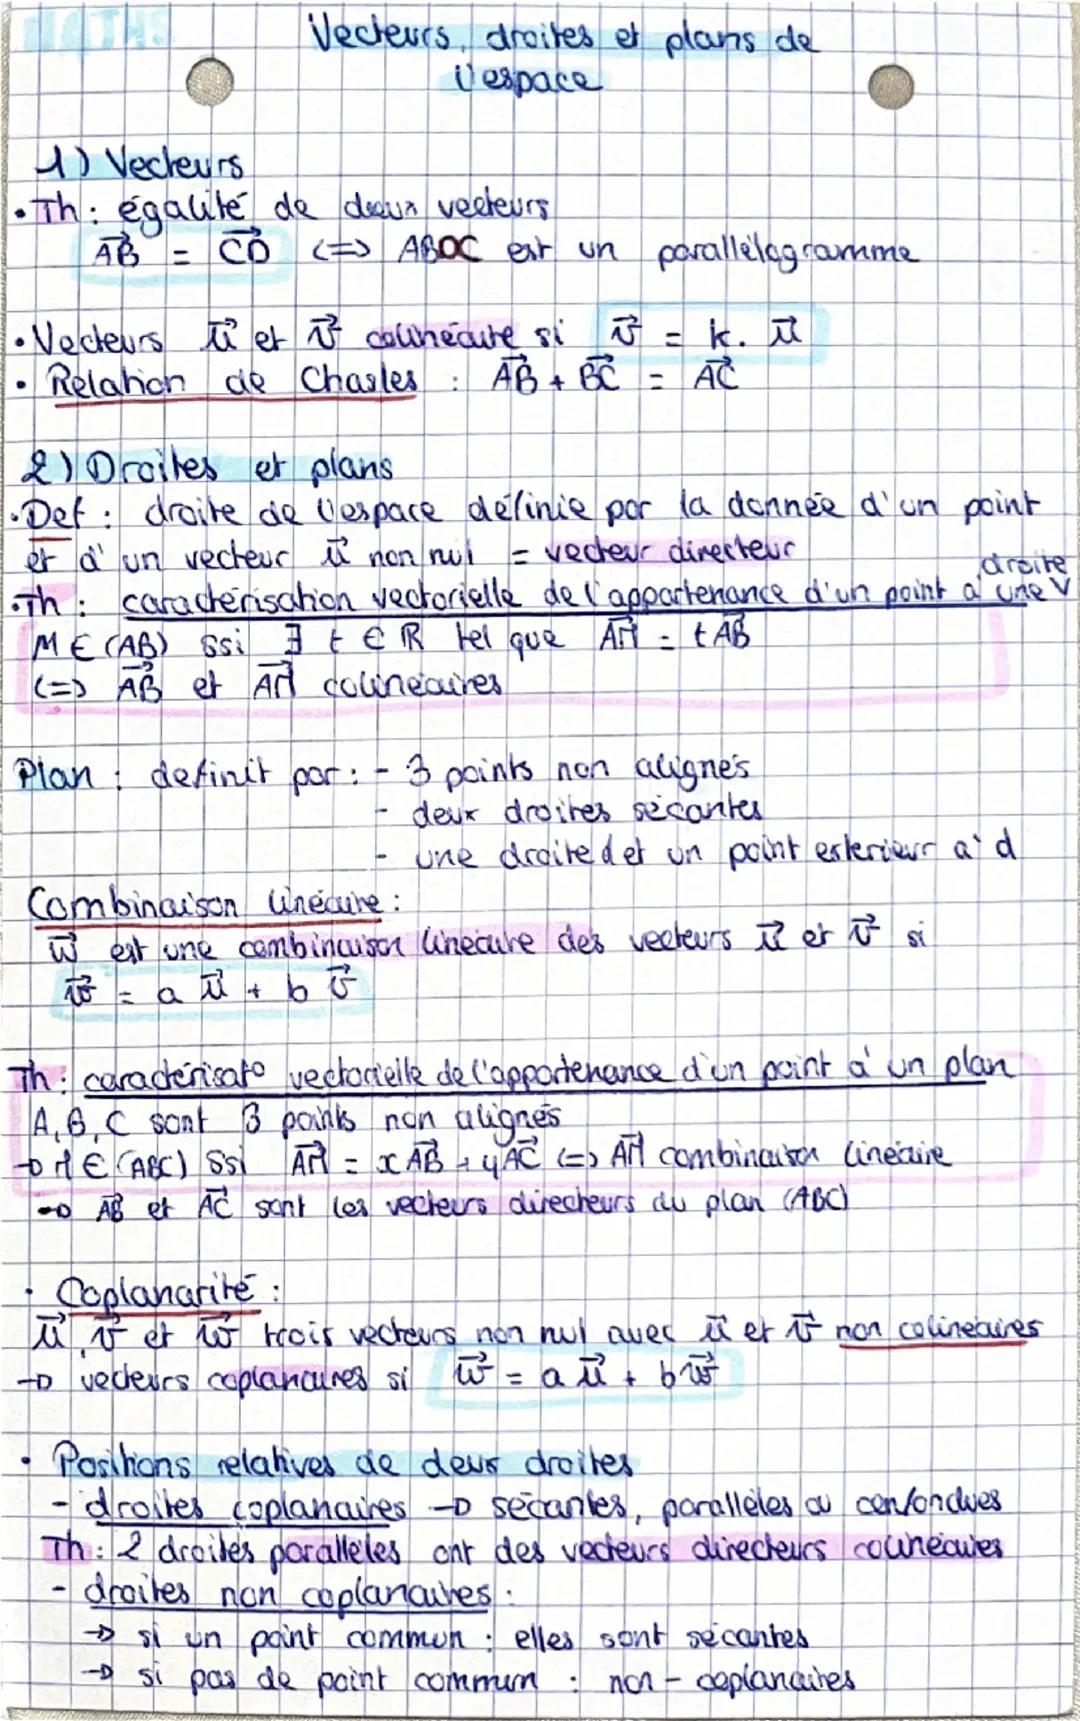 Vecteurs, droites et plans de
l'espace
1) Vecteurs
• Th : égalité de deux vecteurs
AB→ = CD→ <=> ABDC est un parallélogramme
• Vecteurs u→ et v→ colinéaire si v→ = k. u→
• Relation de Chasles : AB→ + BC→ = AC→
2) Droites et plans
• Def : droite de l'espace définie par la donnée d'un point
et d'un vecteur u→ non nul = vecteur directeur
droite
• Th : caractérisation vectorielle de l'appartenance d'un point à une V
M ∈ (AB) ssi ∃ t ∈ ℝ tel que AM→ = t AB→
<=> AB→ et AM→ colinéaires
Plan : definit par : - 3 points non alignés
- deux droites sécantes
- une droite d et un point exterieur à d
Combinaison linéaire :
w→ est une combinaison linéaire des vecteurs u→ et v→ si
w→ = a u→ + b v→
Th : caractérisat° vectorielle de l'appartenance d'un point à un plan
A, B, C sont 3 points non alignés
→ M ∈ (ABC) ssi AM→ = x AB→ + y AC→ <=> AM→ combinaison linéaire
→ AB→ et AC→ sont les vecteurs directeurs du plan (ABC)
• Coplanarité :
u→, v→ et w→ trois vecteurs non nul avec u→ et v→ non colinéaires
→ vecteurs coplanaires si w→ = a u→ + b w→
• Positions relatives de deux droites
- droites coplanaires → sécantes, parallèles ou confondues
Th : 2 droites parallèles ont des vecteurs directeurs colinéaires
- droites non coplanaires :
→ si un point commun : elles sont sécantes
→ si pas de point commun : non - coplanaires